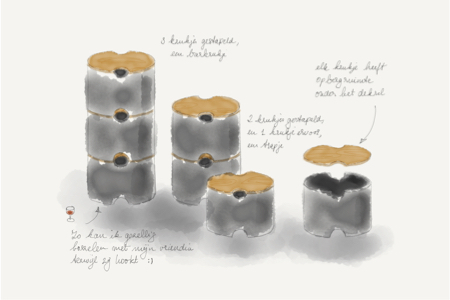 3 krukje gestapeld,
een barkrukje
elk krukje heeft
opbergruimte
onder het deksel
2 krukjes gestapeld,
en 1 krukje ervoor,
een trapje
Zo kan ik gezellig
borrelen met mijn vriendin
terwijl zij kookt :)